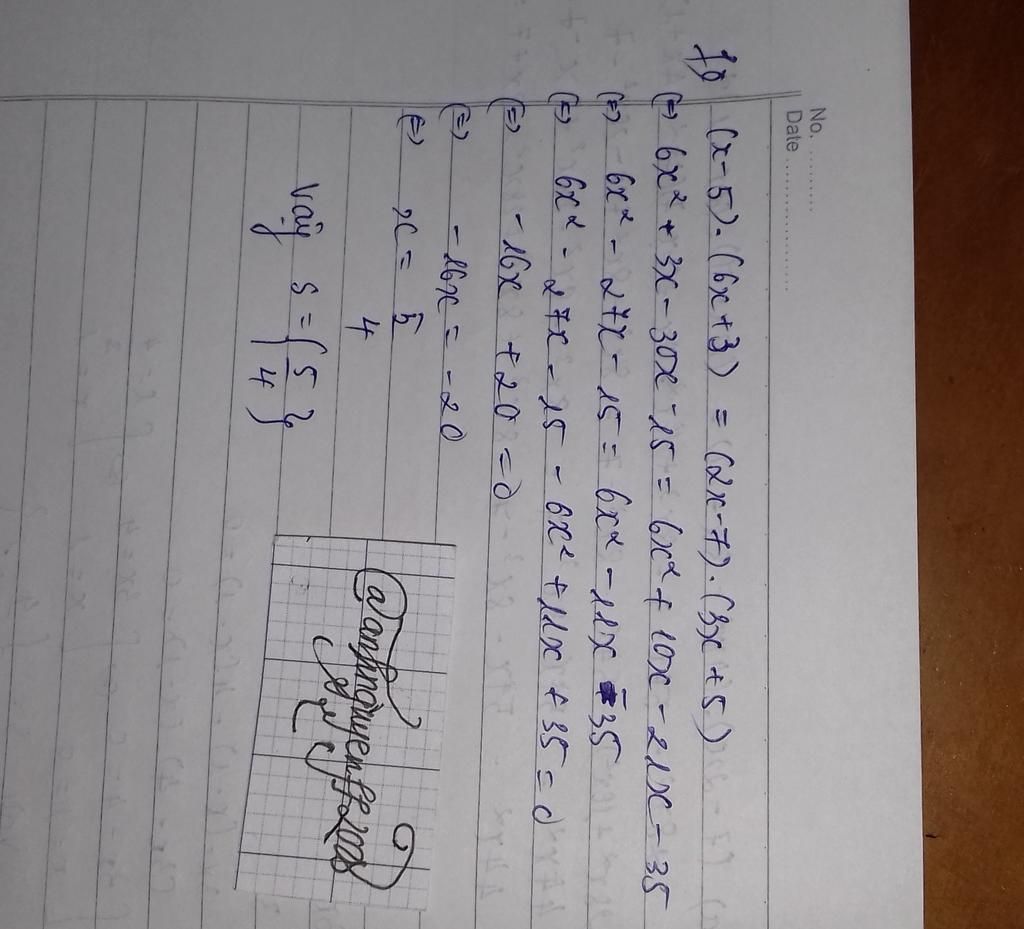 No. ............
Date ........................
f) (x-5).(6x+3) = (2x-7).(3x+5)
(=) 6x² + 3x - 30x - 15 = 6x² + 10x - 21x - 35
(=) 6x² - 27x - 15 = 6x² - 11x - 35
(=) 6x² - 27x - 15 - 6x² + 11x + 35 = 0
(=) - 16x + 20 = 0
(=) - 16x = - 20
(=) x = 5/4
Vậy S = { 5/4 }